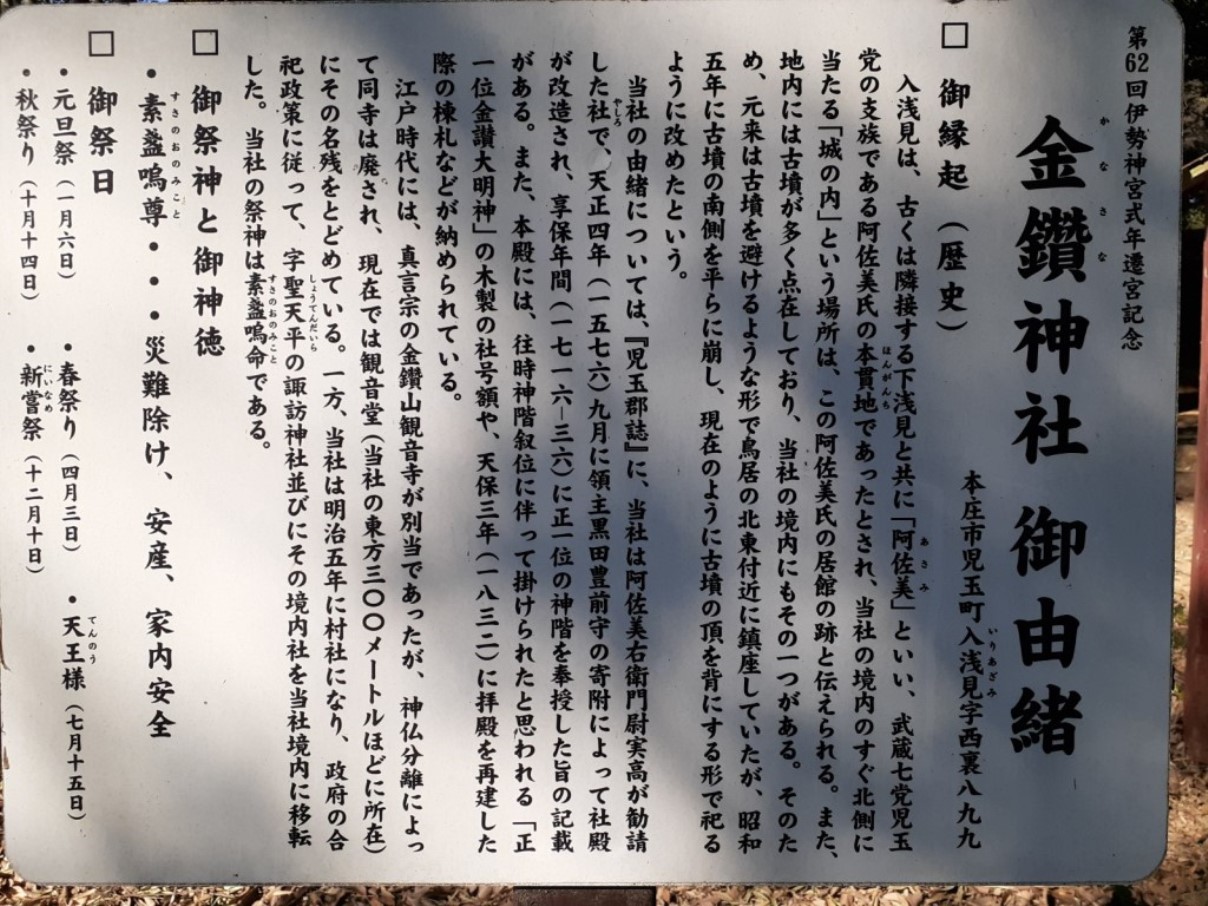 第62回伊勢神宮式年遷宮記念
金鑽神社 御由緒
かなさな
本庄市児玉町入浅見字西裏八九九
いりあざみ
□ 御縁起（歴史）
入浅見は、古くは隣接する下浅見と共に「阿佐美」といい、武蔵七党児玉
あさみ
党の支族である阿佐美氏の本貫地であったとされ、当社の境内のすぐ北側に
ほんがんち
当たる「城の内」という場所は、この阿佐美氏の居館の跡と伝えられる。また、
地内には古墳が多く点在しており、当社の境内にもその一つがある。そのた
め、元来は古墳を避けるような形で鳥居の北東付近に鎮座していたが、昭和
五年に古墳の南側を平らに崩し、現在のように古墳の頂を背にする形で祀る
ように改めたという。
当社の由緒については、『児玉郡誌』に、当社は阿佐美右衛門尉実高が勧請
した社で、天正四年（一五七六）九月に領主黒田豊前守の寄附によって社殿
やしろ
が改造され、享保年間（一七一六－三六）に正一位の神階を奉授した旨の記載
がある。また、本殿には、往時神階叙位に伴って掛けられたと思われる「正
一位金讃大明神」の木製の社号額や、天保三年（一八三二）に拝殿を再建した
際の棟札などが納められている。
江戸時代には、真言宗の金鑽山観音寺が別当であったが、神仏分離によっ
て同寺は廃され、現在では観音堂（当社の東方三〇〇メートルほどに所在）
にその名残をとどめている。一方、当社は明治五年に村社になり、政府の合
祀政策に従って、字聖天平の諏訪神社並びにその境内社を当社境内に移転
しょうてんだいら
した。当社の祭神は素盞嗚命である。
すさのおのみこと
□ 御祭神と御神徳
・素盞嗚尊・・・災難除け、安産、家内安全
すさのおのみこと
□ 御祭日
・元旦祭（一月六日） ・春祭り（四月三日） ・天王様（七月十五日）
てんのう
・秋祭り（十月十四日） ・新嘗祭（十二月十日）
にいなめ